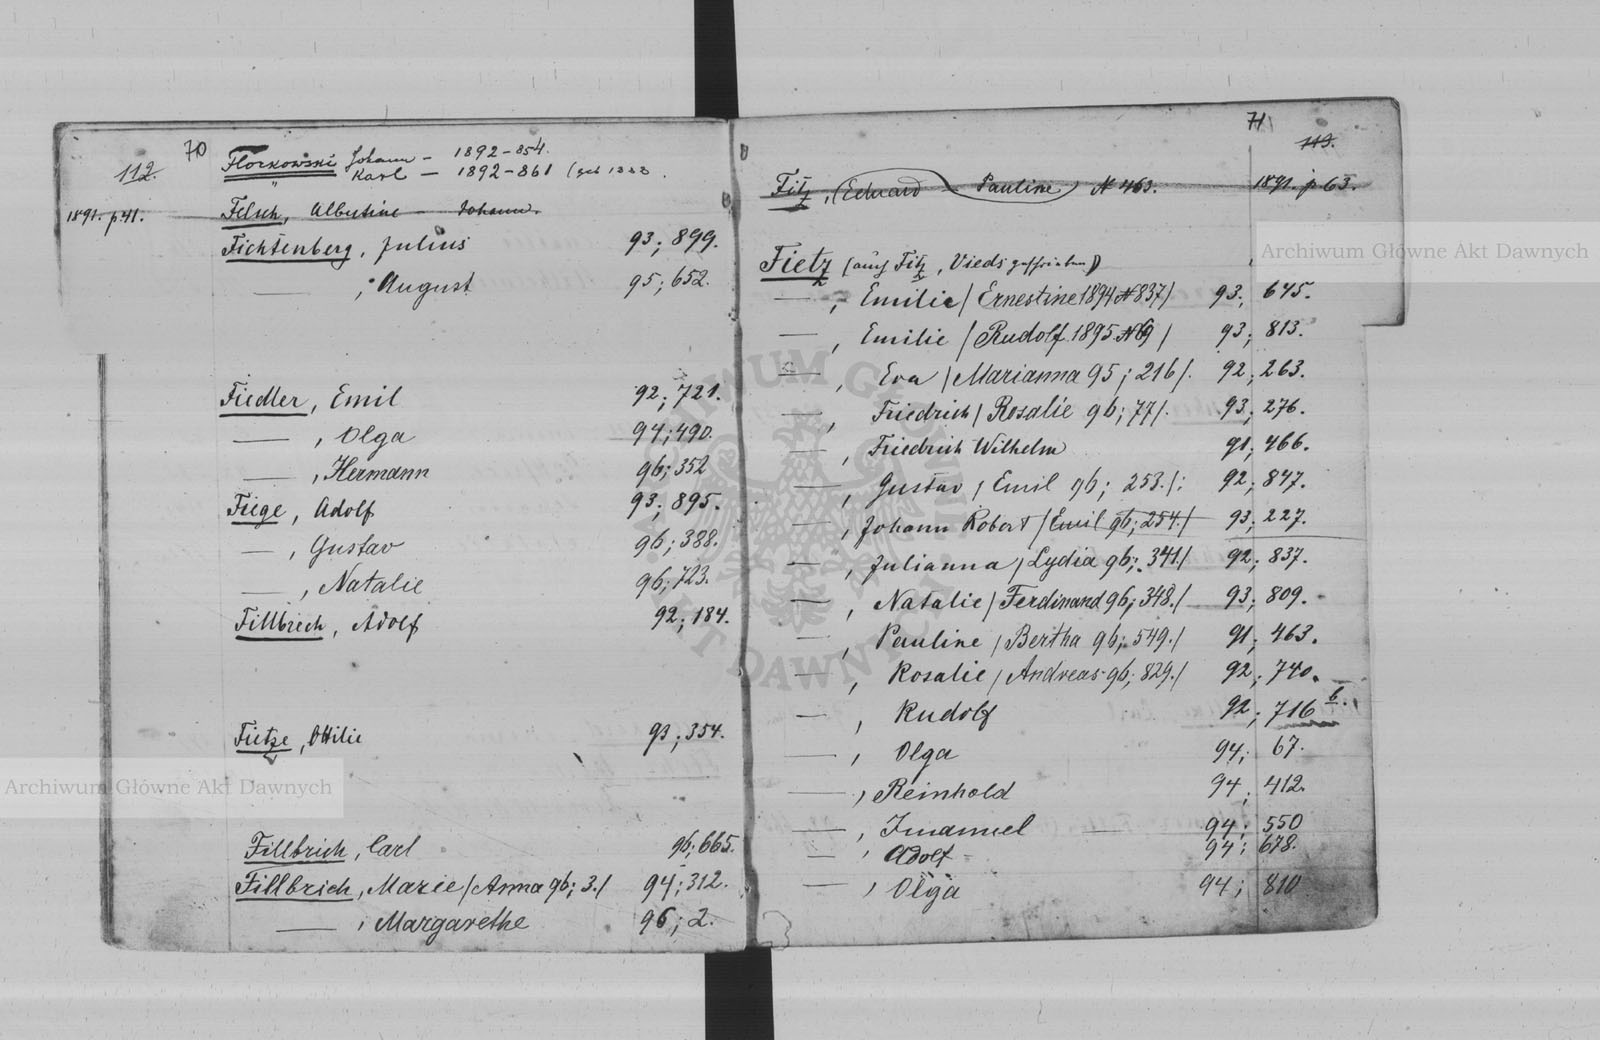 70
112.
Florkowski Johann - 1892-854.
" Karl - 1892-861 (geb 1888.
1891. p.41. Felsch, Albertine - Johann.
Fichtenberg, Julius 93; 899.
—, August 95; 652.
Fiedler, Emil 92; 721.
—, Olga 94; 490.
—, Hermann 96; 352
Fiege, Adolf 93; 895.
—, Gustav 96; 388.
—, Natalie 96; 723.
Fillbrich, Adolf 92; 184.
Fietze, Ottilie 93; 354.
Fillbrich, Carl 96; 665.
Fillbrich, Marie /Anna 96; 3./ 94; 312.
—, Margarethe 96; 2.
71
113.
Fitz, (Eduard - Pauline) N 463. 1891. p 63.
Fietz (auch Fitz, )
—, Emilie /Ernestine 1894 N 837/ 93; 645.
—, Emilie /Rudolf 1895 N 69/ 93; 813.
—, Eva /Marianna 95; 216/. 92; 263.
—, Friedrich /Rosalie 96; 77/. 93; 276.
—, Friedrich Wilhelm 91; 466.
—, Gustav /Emil 96; 253./: 92; 847.
—, Johann Robert /Emil 96; 254./ 93; 227.
—, Julianna /Lydia 96; 341./ 92; 837.
—, Natalie /Ferdinand 96; 348./ 93; 809.
—, Pauline /Bertha 96; 549./ 91; 463.
—, Rosalie /Andreas 96; 829./ 92; 740.
—, Rudolf 92; 716 b.
—, Olga 94; 67.
—, Reinhold 94; 412.
—, Imanuel 94; 550
—, Adolf 94; 678.
—, Olga 94; 810
Archiwum Główne Akt Dawnych
Archiwum Główne Akt Dawnych
ARCHIWUM GŁÓWNE AKT DAWNYCH